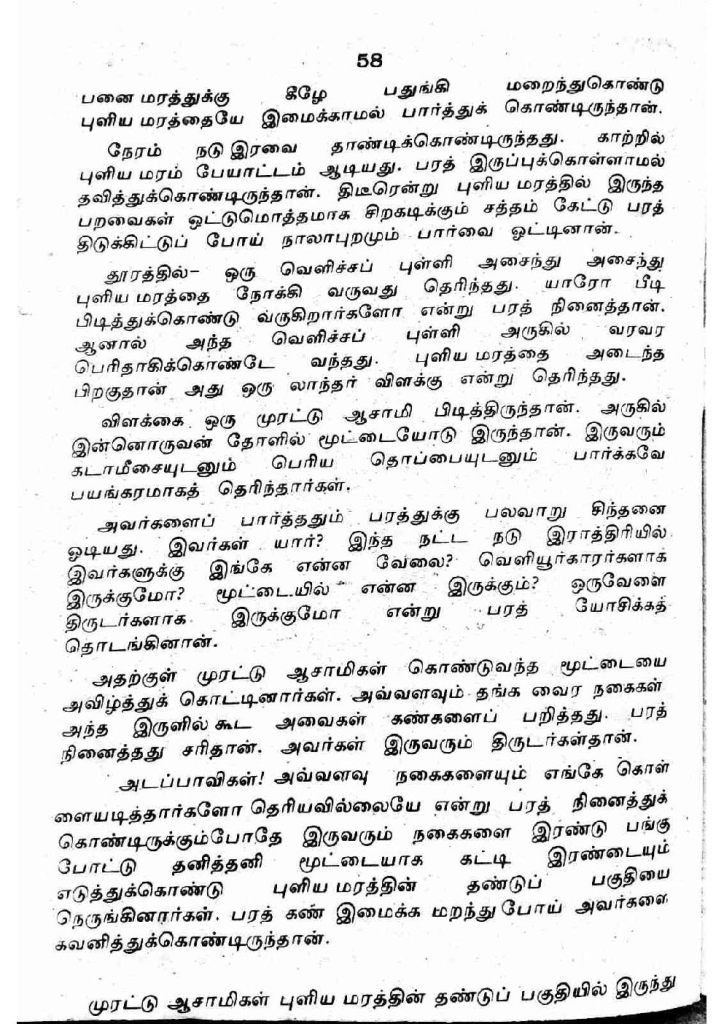 58
பனை மரத்துக்கு கீழே பதுங்கி மறைந்துகொண்டு
புளிய மரத்தையே இமைக்காமல் பார்த்துக் கொண்டிருந்தான்.
நேரம் நடு இரவை தாண்டிக்கொண்டிருந்தது. காற்றில்
புளிய மரம் பேயாட்டம் ஆடியது. பரத் இருப்புக்கொள்ளாமல்
தவித்துக்கொண்டிருந்தான். திடீரென்று புளிய மரத்தில் இருந்த
பறவைகள் ஒட்டுமொத்தமாக சிறகடிக்கும் சத்தம் கேட்டு பரத்
திடுக்கிட்டுப் போய் நாலாபுறமும் பார்வை ஓட்டினான்.
தூரத்தில்- ஒரு வெளிச்சப் புள்ளி அசைந்து அசைந்து
புளிய மரத்தை நோக்கி வருவது தெரிந்தது. யாரோ பீடி
பிடித்துக்கொண்டு வருகிறார்களோ என்று பரத் நினைத்தான்.
ஆனால் அந்த வெளிச்சப் புள்ளி அருகில் வரவர
பெரிதாகிக்கொண்டே வந்தது. புளிய மரத்தை அடைந்த
பிறகுதான் அது ஒரு லாந்தர் விளக்கு என்று தெரிந்தது.
விளக்கை ஒரு முரட்டு ஆசாமி பிடித்திருந்தான். அருகில்
இன்னொருவன் தோளில் மூட்டையோடு இருந்தான். இருவரும்
கடாமீசையுடனும் பெரிய தொப்பையுடனும் பார்க்கவே
பயங்கரமாகத் தெரிந்தார்கள்.
அவர்களைப் பார்த்ததும் பரத்துக்கு பலவாறு சிந்தனை
ஓடியது. இவர்கள் யார்? இந்த நட்ட நடு இராத்திரியில்
இவர்களுக்கு இங்கே என்ன வேலை? வெளியூர்காரர்களாக
இருக்குமோ? மூட்டையில் என்ன இருக்கும்? ஒருவேளை
திருடர்களாக இருக்குமோ என்று பரத் யோசிக்கத்
தொடங்கினான்.
அதற்குள் முரட்டு ஆசாமிகள் கொண்டுவந்த மூட்டையை
அவிழ்த்துக் கொட்டினார்கள். அவ்வளவும் தங்க வைர நகைகள்
அந்த இருளில் கூட அவைகள் கண்களைப் பறித்தது. பரத்
நினைத்தது சரிதான். அவர்கள் இருவரும் திருடர்கள்தான்.
அடப்பாவிகள்! அவ்வளவு நகைகளையும் எங்கே கொள்
ளையடித்தார்களோ தெரியவில்லையே என்று பரத் நினைத்துக்
கொண்டிருக்கும்போதே இருவரும் நகைகளை இரண்டு பங்கு
போட்டு தனித்தனி மூட்டையாக கட்டி இரண்டையும்
எடுத்துக்கொண்டு புளிய மரத்தின் தண்டுப் பகுதியை
நெருங்கினார்கள். பரத் கண் இமைக்க மறந்து போய் அவர்களை
கவனித்துக்கொண்டிருந்தான்.
முரட்டு ஆசாமிகள் புளிய மரத்தின் தண்டுப் பகுதியில் இருந்து